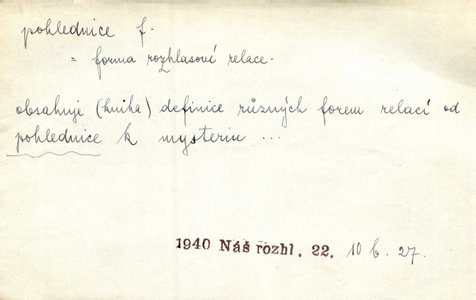 pohlednice f.
= forma rozhlasové relace.
obsahuje (kniha) definice různých forem relací od
pohlednice k mysteriu ...
1940 Náš rozhl. 22. 10 b. 27.